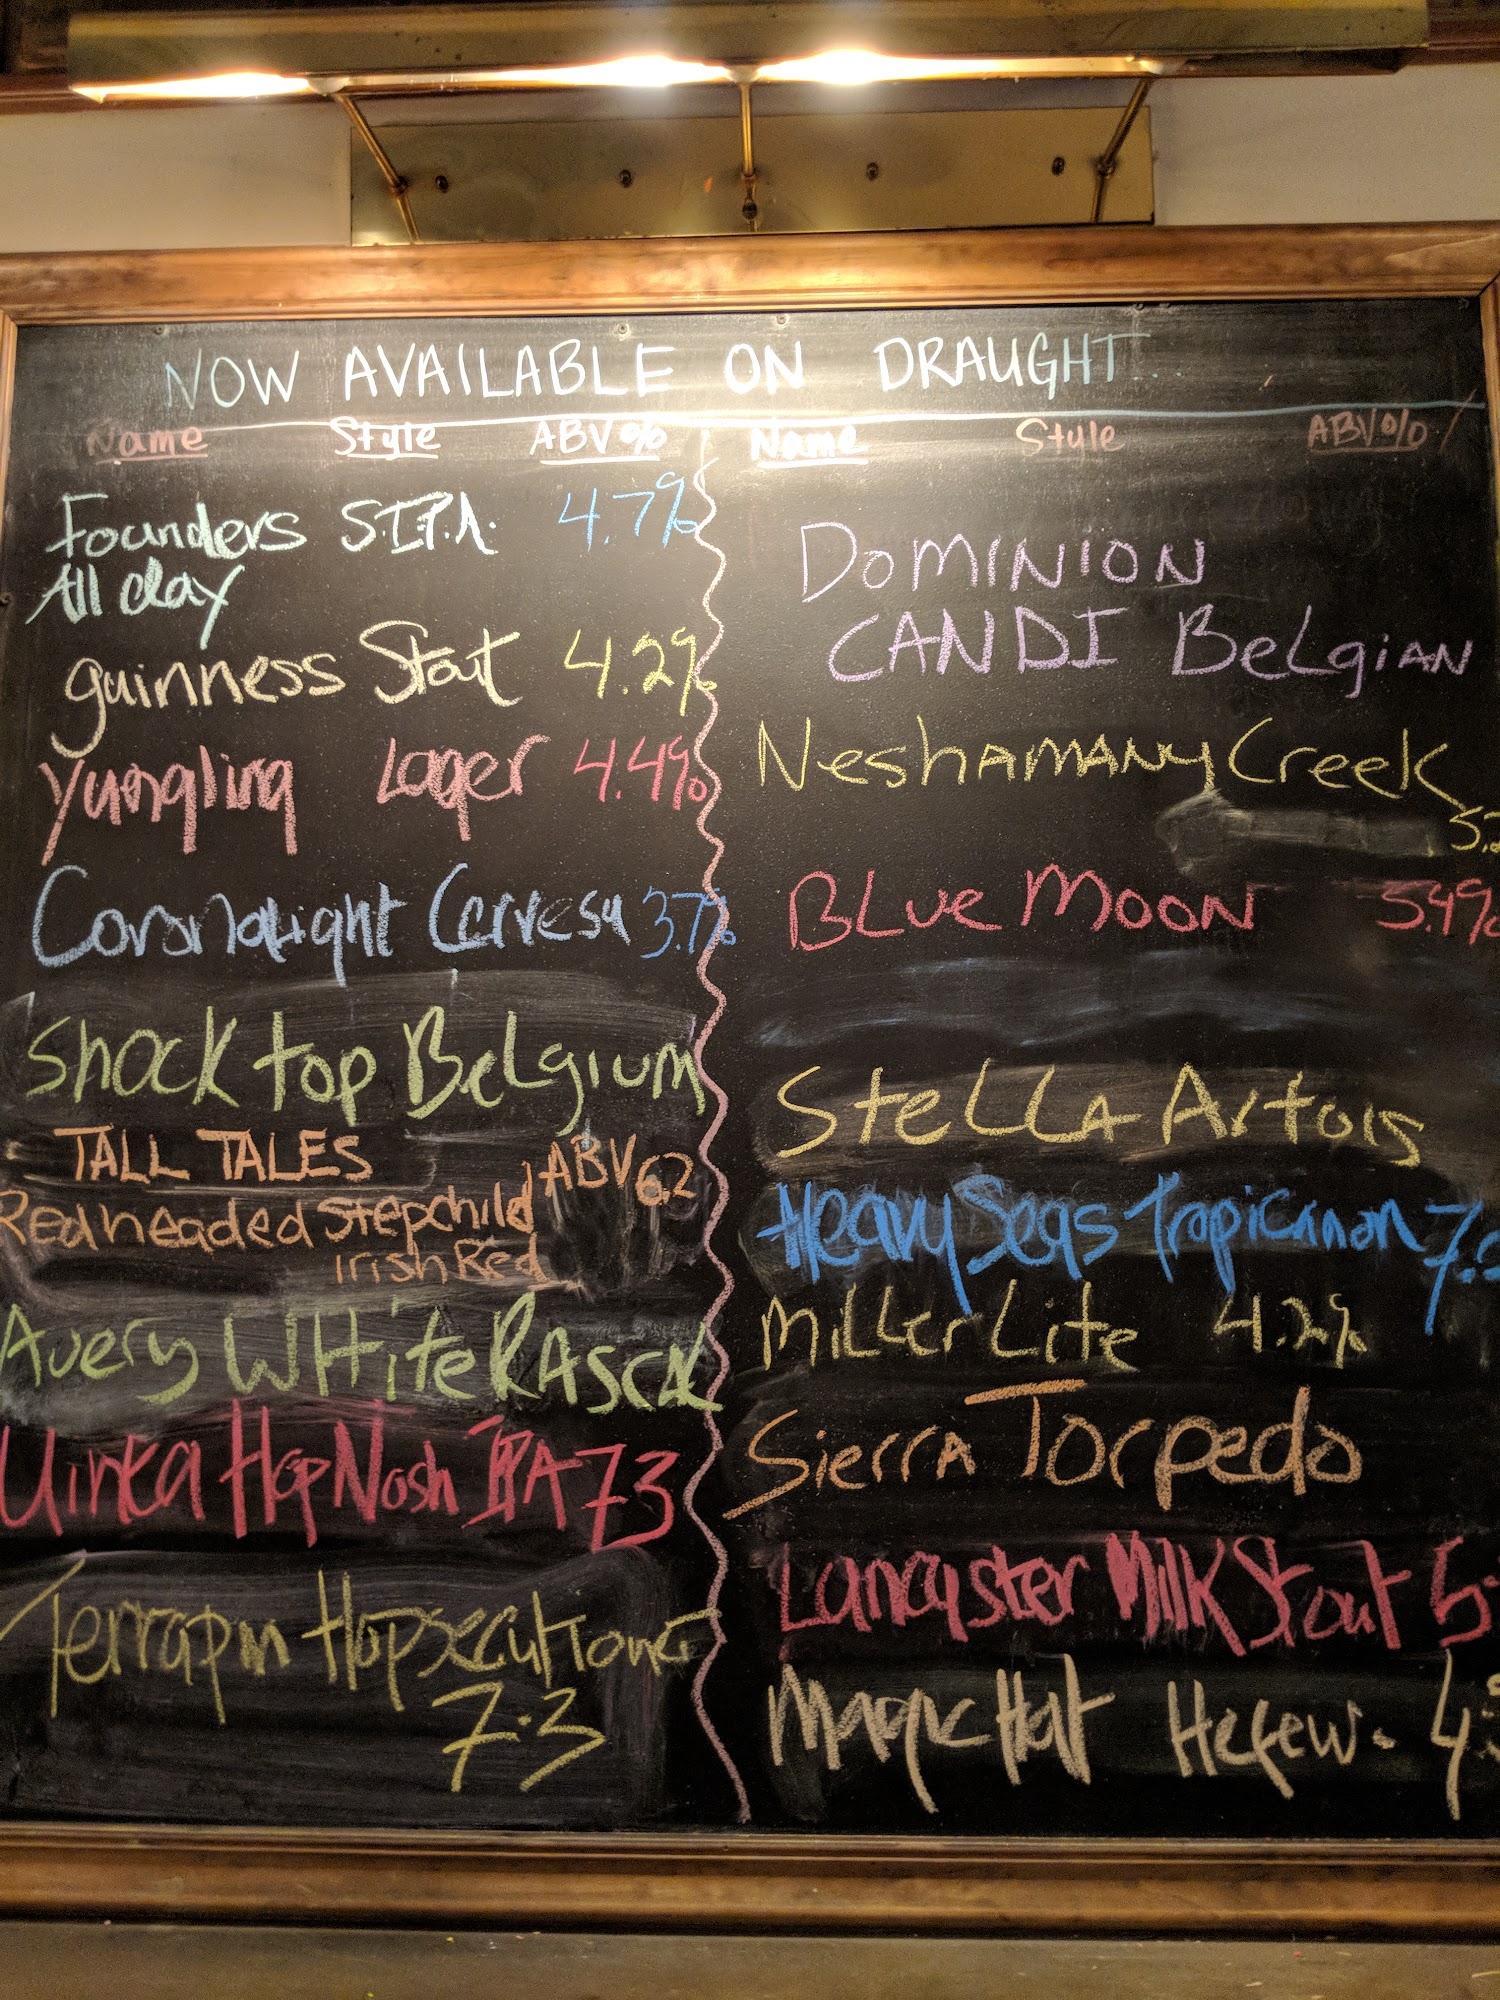 NOW AVAILABLE ON DRAUGHT...
Name Style ABV%
Founders S.I.P.A. 4.7%
All day
guinness Stout 4.2%
Yungling Lager 4.4%
Corona Light Cervesa 3.7%
Shock top Belgium
TALL TALES ABV 6.2
Redheaded Stepchild
Irish Red
Avery WHite RAscal
Uinta Hop Nosh IPA 7.3
Terrapin Hopsecutioner
7.3
Name Style ABV%
DOMINION
CANDI BeLgiAN
NeshAMANy Creek
5.2
BLue MOON 5.4%
SteLLA Artois
Heavy Seas Tropicannon 7.
MiLLer Lite 4.2%
SierrA Torpedo
Lancaster Milk Stout 5.
Magic Hat Hefew. 4.